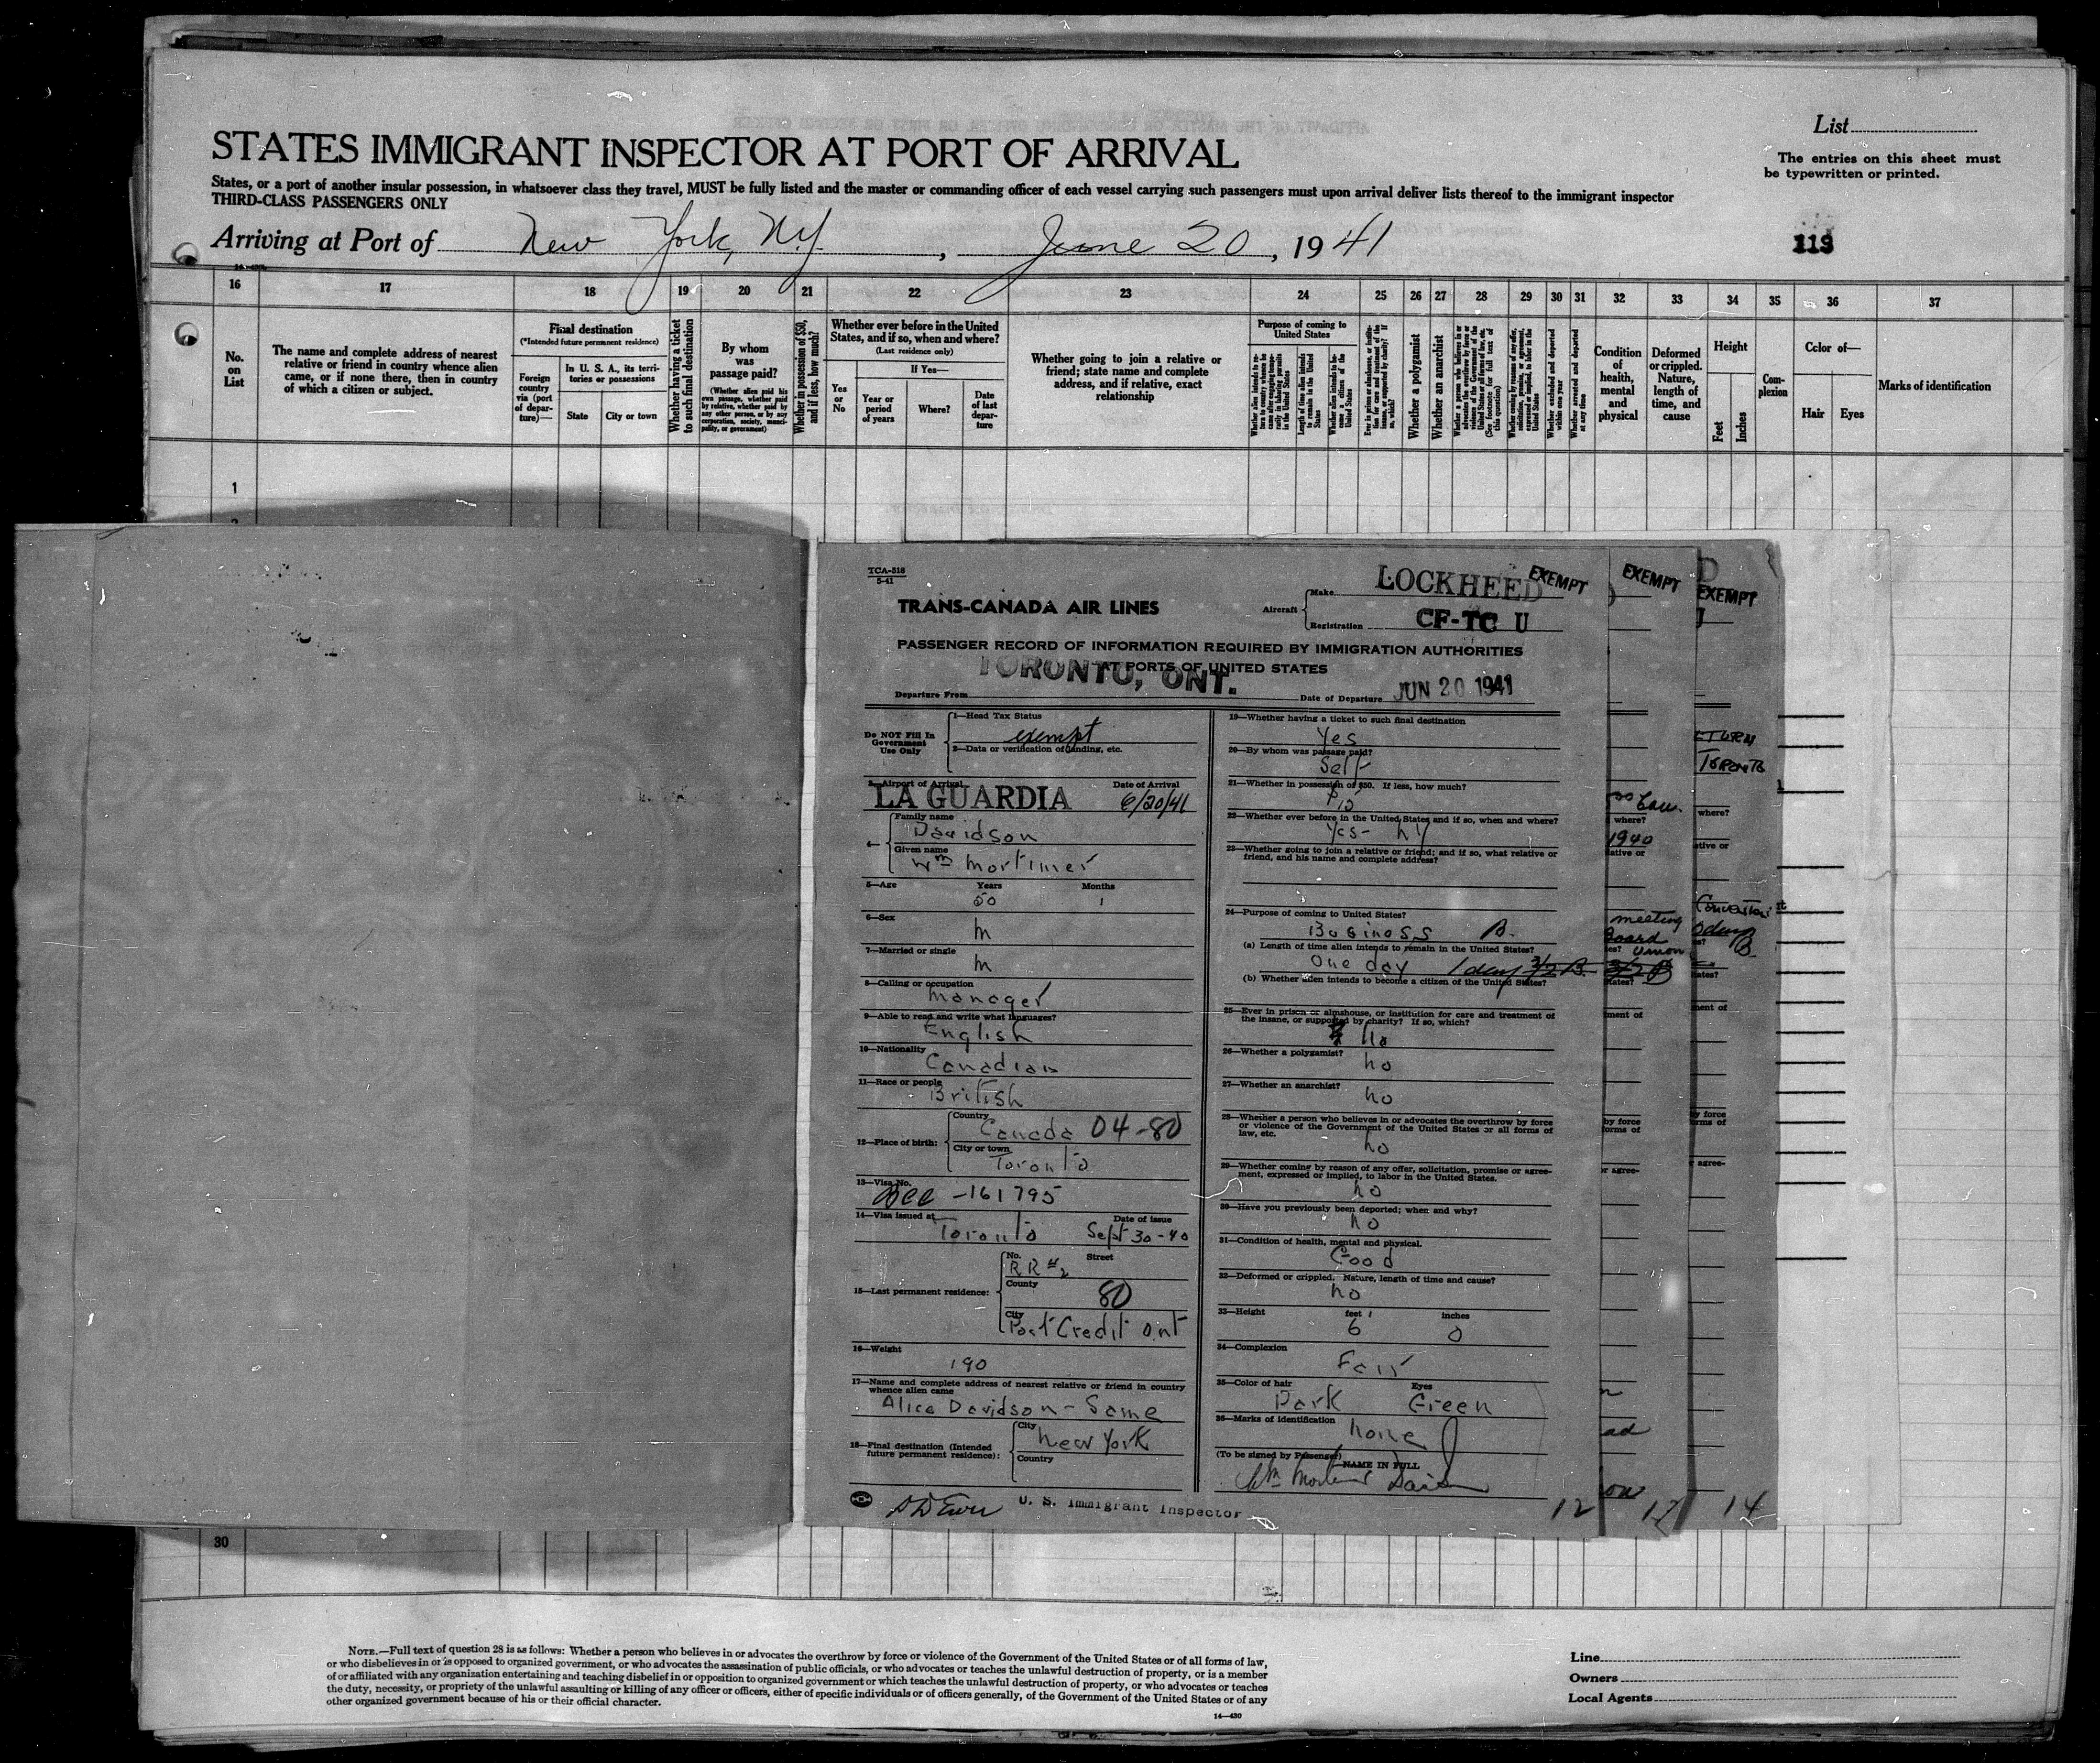 STATES IMMIGRANT INSPECTOR AT PORT OF ARRIVAL
List
The entries on this sheet must
be typewritten or printed.
States, or a port of another insular possession, in whatsoever class they travel, MUST be fully listed and the master or commanding officer of each vessel carrying such passengers must upon arrival deliver lists thereof to the immigrant inspector
THIRD-CLASS PASSENGERS ONLY
Arriving at Port of New York, N.Y., June 20, 1941
113
16 17 18 19 20 21 22 23 24 25 26 27 28 29 30 31 32 33 34 35 36 37
No. on List
The name and complete address of nearest
relative or friend in country whence alien
came, or if none there, then in country
of which a citizen or subject.
Final destination
(*Intended future permanent residence)
Foreign country via (port of departure)—
In U. S. A., its territories or possessions
State
City or town
Whether having a ticket to such final destination
By whom was passage paid?
(Whether alien paid his own passage, whether paid by relative, whether paid by any other person, or by any corporation, society, municipality, or government)
Whether in possession of $50, and if less, how much?
Whether ever before in the United
States, and if so, when and where?
(Last residence only)
Yes or No
If Yes—
Year or period of years
Where?
Date of last departure
Whether going to join a relative or
friend; state name and complete
address, and if relative, exact
relationship
Purpose of coming to United States
Length of time alien intends to remain in the United States
Whether alien intends to become a citizen of the United States
Whether a polygamist
Whether an anarchist
Condition of health, mental and physical
Deformed or crippled. Nature, length of time, and cause
Height
Feet
Inches
Complexion
Color of—
Hair
Eyes
Marks of identification
1
TCA-518
5-41
TRANS-CANADA AIR LINES
Aircraft
Make LOCKHEED
EXEMPT
Registration CF-TC U
PASSENGER RECORD OF INFORMATION REQUIRED BY IMMIGRATION AUTHORITIES
AT PORTS OF UNITED STATES
Departure From TORONTO, ONT.
Date of Departure JUN 20 1941
Do NOT Fill In
Government
Use Only
1—Head Tax Status
exempt
2—Data or verification of landing, etc.
3—Airport of Arrival
LA GUARDIA
Date of Arrival
6/20/41
4—
Family name
Davidson
Given name
Wm Mortimer
5—Age Years Months
50 1
6—Sex
M
7—Married or single
M
8—Calling or occupation
Manager
9—Able to read and write what languages?
English
10—Nationality
Canadian
11—Race or people
British
12—Place of birth:
Country
Canada 04-80
City or town
Toronto
13—Visa No.
-161795
14—Visa issued at Date of issue
Toronto Sept 30-40
15—Last permanent residence:
No. Street
RR #2
County
80
City
Port Credit Ont
16—Weight
190
17—Name and complete address of nearest relative or friend in country
whence alien came
Alice Davidson - Same
18—Final destination (Intended
future permanent residence):
City
New York
Country
U. S. Immigrant Inspector
19—Whether having a ticket to such final destination
Yes
20—By whom was passage paid?
Self
21—Whether in possession of $50. If less, how much?
$15
22—Whether ever before in the United States and if so, when and where?
Yes - NY
23—Whether going to join a relative or friend; and if so, what relative or
friend, and his name and complete address?
24—Purpose of coming to United States?
Business B.
(a) Length of time alien intends to remain in the United States?
One day 1 day 3/2 B.
(b) Whether alien intends to become a citizen of the United States?
25—Ever in prison or almshouse, or institution for care and treatment of
the insane, or supported by charity? If so, which?
No
26—Whether a polygamist?
No
27—Whether an anarchist?
No
28—Whether a person who believes in or advocates the overthrow by force
or violence of the Government of the United States or all forms of
law, etc.
No
29—Whether coming by reason of any offer, solicitation, promise or agree-
ment, expressed or implied, to labor in the United States.
No
30—Have you previously been deported; when and why?
No
31—Condition of health, mental and physical.
Good
32—Deformed or crippled. Nature, length of time and cause?
No
33—Height feet inches
6 0
34—Complexion
Fair
35—Color of hair Eyes
Dark Green
36—Marks of identification
None
(To be signed by Passenger)
NAME IN FULL
Wm Mortimer Davidson
12
EXEMPT
where?
1940
ative or
meeting
Board
Union
3/2 B
tates?
ment of
by force
orms of
or agree-
17
EXEMPT
TORONTO
where?
ative or
Convention
B
tates?
ment of
by force
orms of
agree-
14
30
NOTE.—Full text of question 28 is as follows: Whether a person who believes in or advocates the overthrow by force or violence of the Government of the United States or of all forms of law,
or who disbelieves in or is opposed to organized government, or who advocates the assassination of public officials, or who advocates or teaches the unlawful destruction of property, or is a member
of or affiliated with any organization entertaining and teaching disbelief in or opposition to organized government or which teaches the unlawful destruction of property, or who advocates or teaches
the duty, necessity, or propriety of the unlawful assaulting or killing of any officer or officers, either of specific individuals or of officers generally, of the Government of the United States or of any
other organized government because of his or their official character.
14—430
Line
Owners
Local Agents